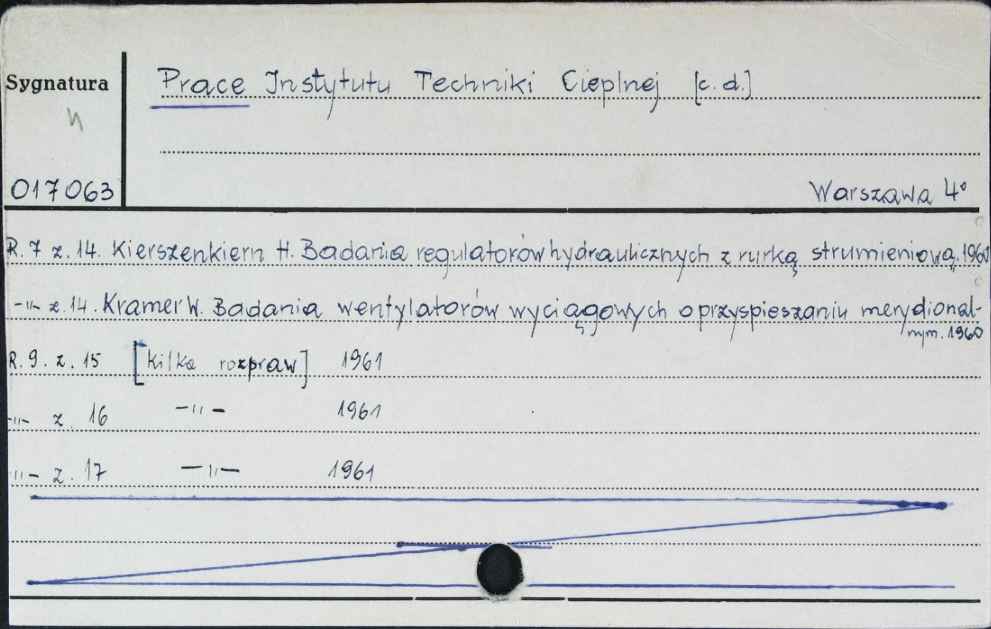 Sygnatura
Prace Instytutu Techniki Cieplnej [c.d.]
017063
Warszawa 4°
R. 7 z. 14. Kierszenkiern H. Badania regulatorów hydraulicznych z rurką strumieniową. 1960
-"- z. 14. Kramer W. Badania wentylatorów wyciągowych o przyspieszaniu merydional-
nym. 1960
R. 9. z. 15 [kilka rozpraw] 1961
-"- z. 16 -"- 1961
-"- z. 17 -"- 1961